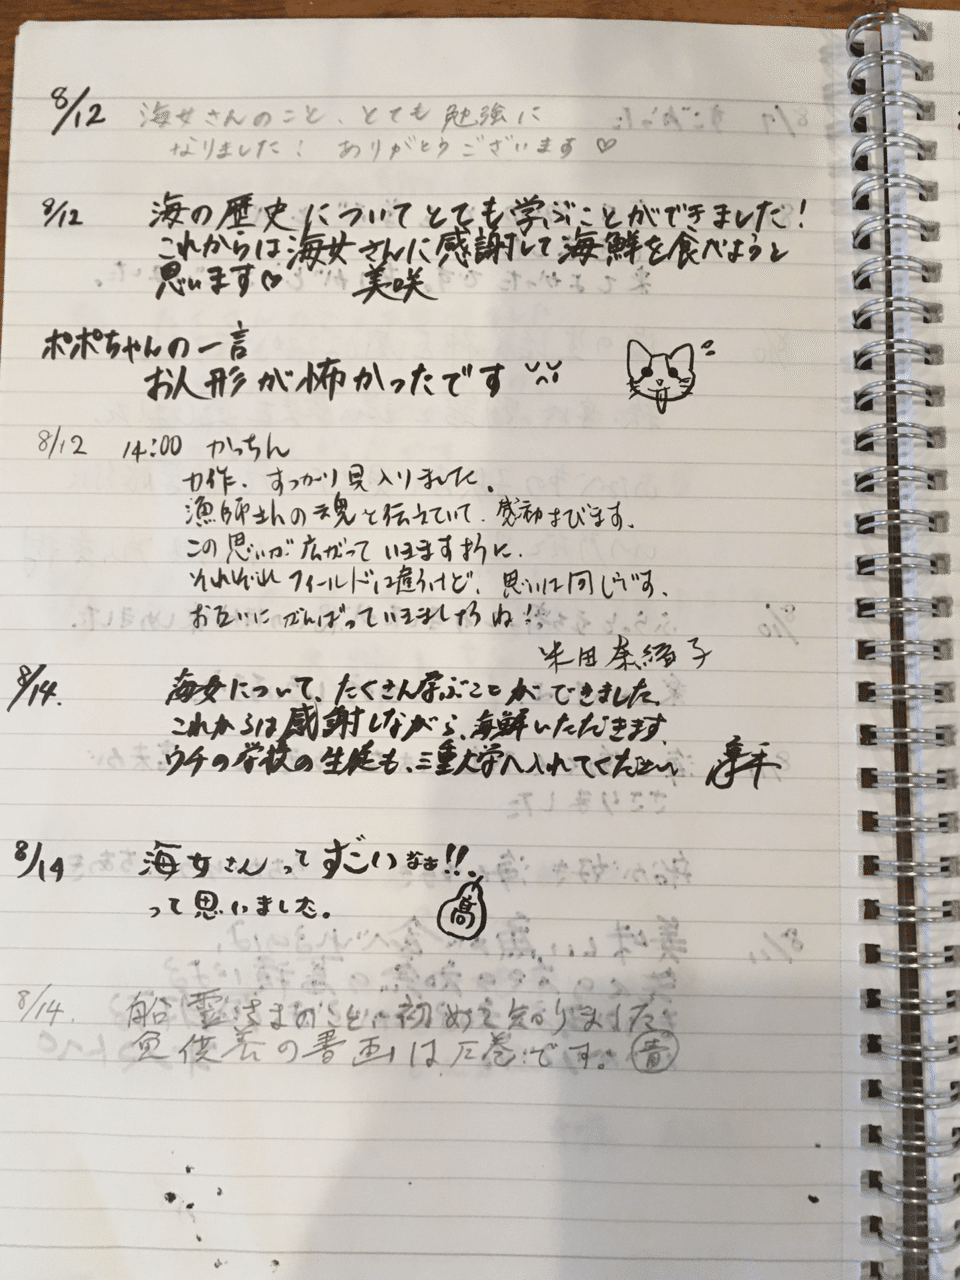 8/12 海女さんのこと、とても勉強に
なりました! ありがとうございます♡
8/12 海の歴史についてとても学ぶことができました!
これからは海女さんに感謝して海鮮を食べようと
思います♡ 美咲
ポポちゃんの一言
お人形が怖かったです
8/12 14:00 かっちん
力作、すっかり見入りました。
漁師さんの魂と伝えていて、感動すびます。
この思いが広がっていきますように。
それぞれフィールドは違うけど、思いは同じです。
お互いにがんばっていきましょうね!
米田奈緒子
8/14. 海女について、たくさん学ぶことができました。
これからは感謝しながら、海鮮いただきます。
ウチの学校の生徒も、三重大学へ入れてください
8/14 海女さんってすごいなぁ!!
って思いました。 高
8/14. 船霊さまのこと、初めて知りました
魚供養の書画は圧巻です。 青